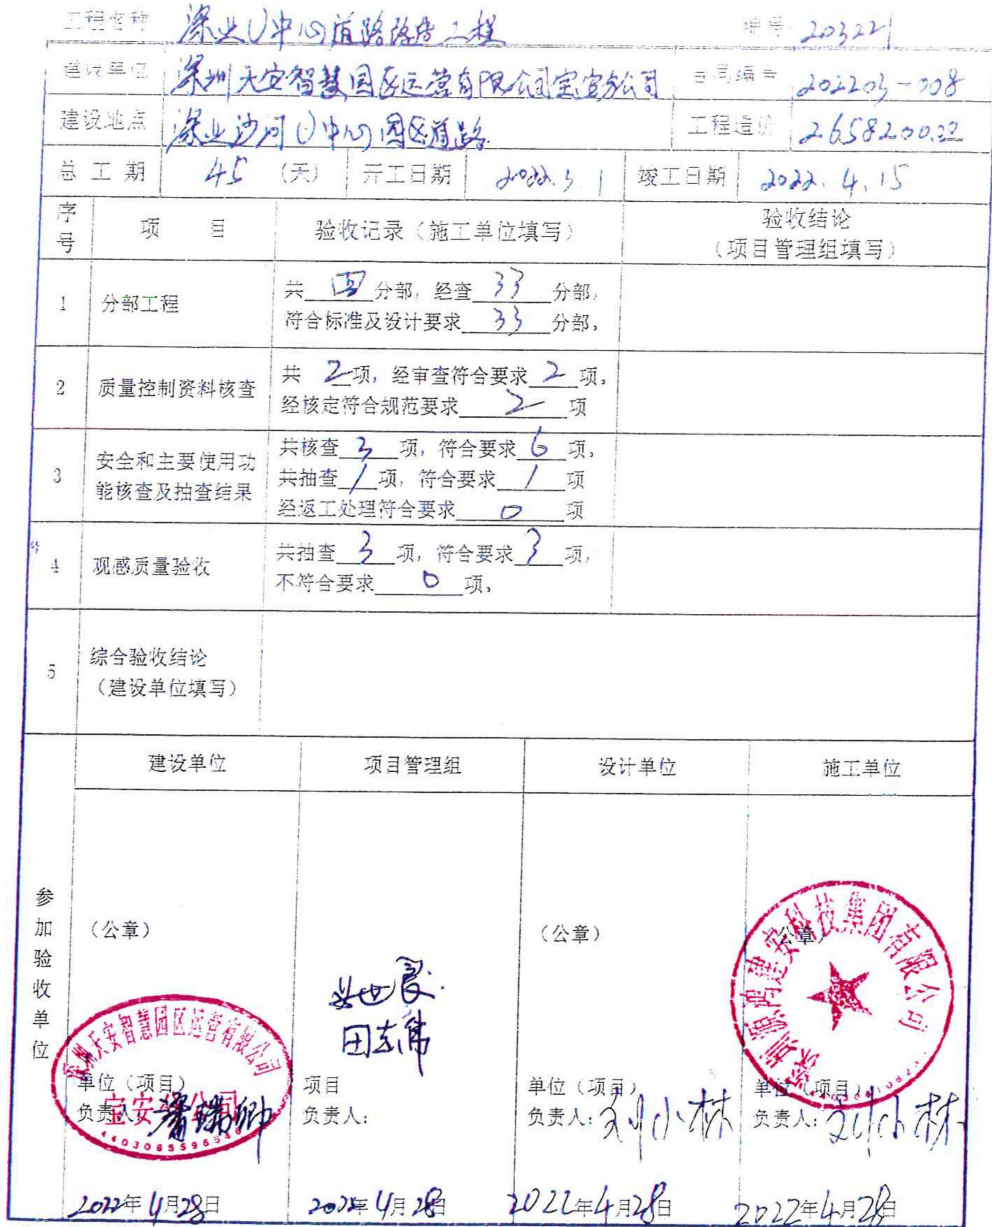 工程名称 深业U中心道路改造工程 编号 203221
建设单位 深圳天安智慧园区运营有限公司宝安分公司 合同编号 202203-008
建设地点 深业沙河U中心园区道路 工程造价 2658200.22
总工期 45（天） 开工日期 2022.3.1 竣工日期 2022.4.15
序号 项目 验收记录（施工单位填写） 验收结论
（项目管理组填写）
1 分部工程 共 分部，经查 33 分部，
符合标准及设计要求 33 分部，
2 质量控制资料核查 共 2 项，经审查符合要求 2 项，
经核定符合规范要求 2 项
3 安全和主要使用功能核查及抽查结果 共核查 3 项，符合要求 6 项，
共抽查 1 项，符合要求 1 项
经返工处理符合要求 0 项
4 观感质量验收 共抽查 3 项，符合要求 3 项，
不符合要求 0 项，
5 综合验收结论
（建设单位填写）
参加验收单位
建设单位 项目管理组 设计单位 施工单位
（公章） （公章） （公章）
深圳天安智慧园区运营有限公司
宝安分公司
深圳源鸿建安科技集团有限公司
田志伟
单位（项目） 项目 单位（项目） 单位（项目）
负责人： 负责人： 负责人：刘小林 负责人：刘小林
2022年4月28日 2022年4月28日 2022年4月28日 2022年4月28日